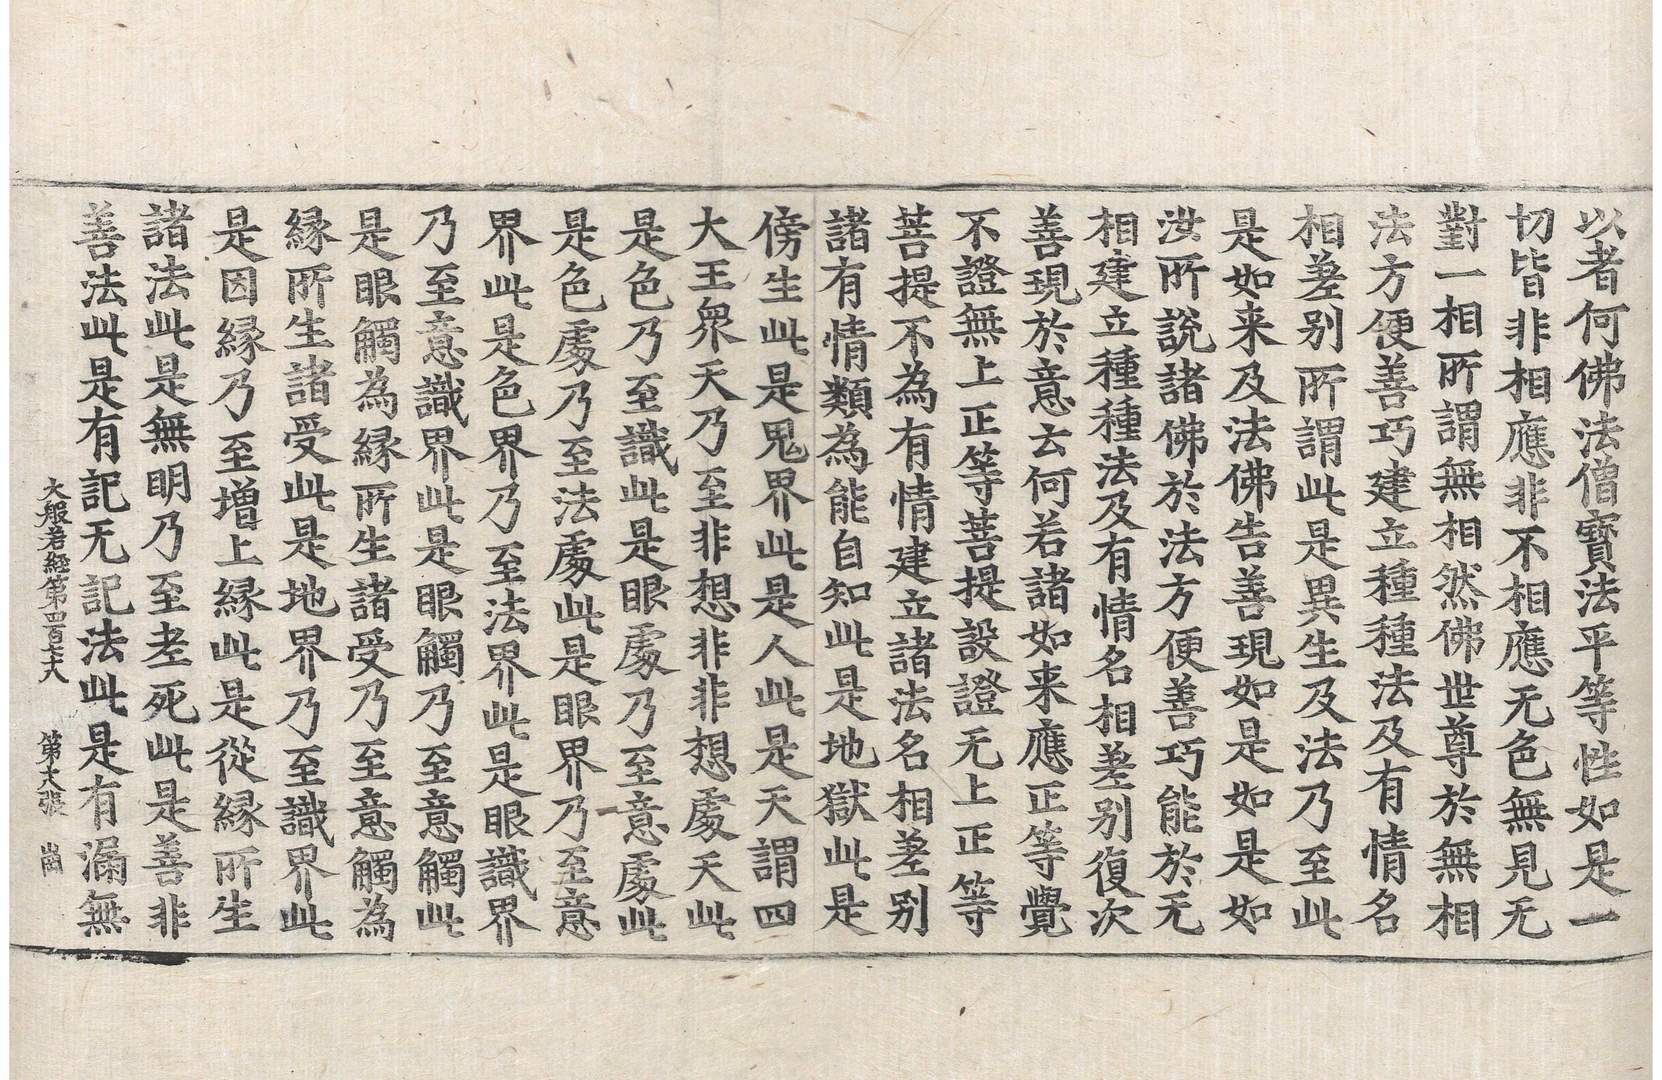 以者何佛法僧寳法平等性如是一
切皆非相應非不相應无色無見无
對一相所謂無相然佛世尊於無相
法方便善巧建立種種法及有情名
相差别所謂此是異生及法乃至此
是如来及法佛告善現如是如是如
汝所說諸佛於法方便善巧能於无
相建立種種法及有情名相差别復次
善現於意云何若諸如来應正等覺
不證無上正等菩提設證无上正等
菩提不為有情建立諸法名相差别
諸有情類為能自知此是地獄此是
傍生此是鬼界此是人此是天謂四
大王衆天乃至非想非非想處天此
是色乃至識此是眼處乃至意處此
是色處乃至法處此是眼界乃至意
界此是色界乃至法界此是眼識界
乃至意識界此是眼觸乃至意觸此
是眼觸為縁所生諸受乃至意觸為
縁所生諸受此是地界乃至識界此
是因縁乃至增上縁此是從縁所生
諸法此是無明乃至老死此是善非
善法此是有記无記法此是有漏無
大般若經第四百七六 第六張 崗